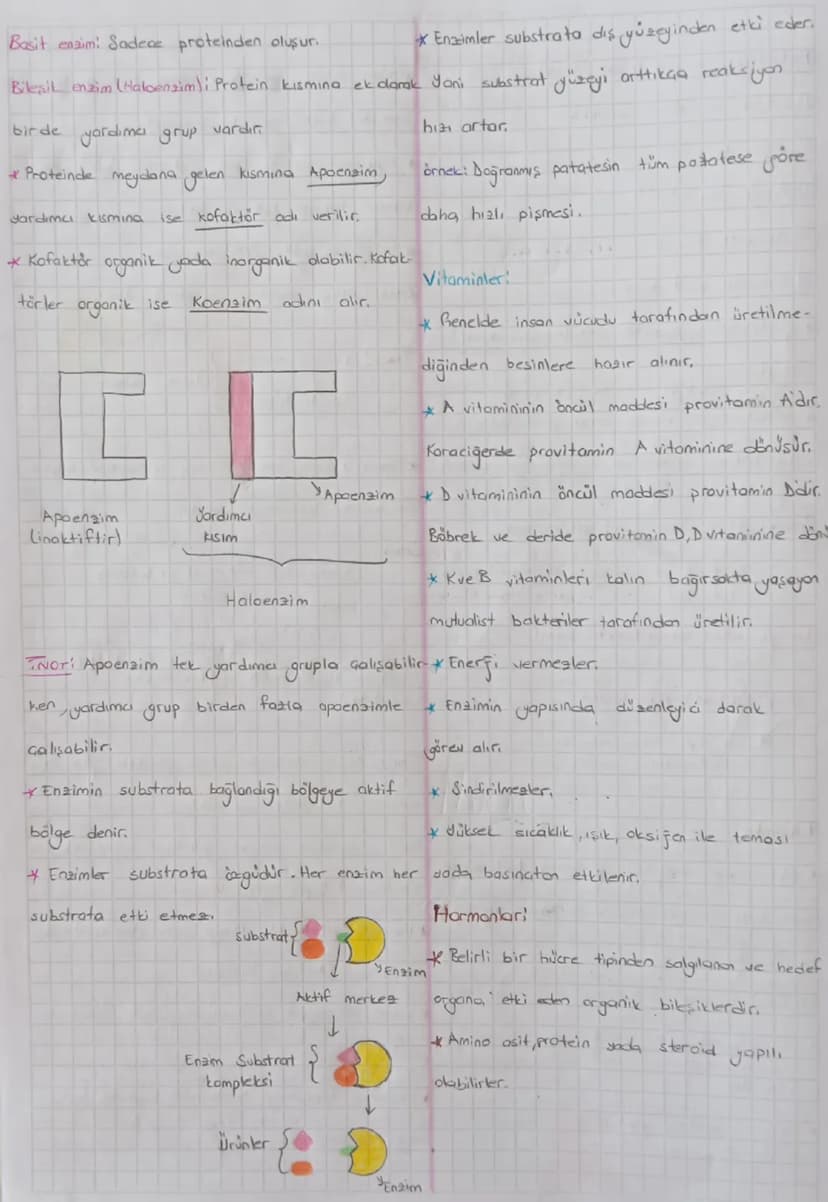 Basit enzim: Sadece proteinden oluşur.
Bileşik enzim (Haloenzim): Protein kısmına ek olarak
birde yardımcı grup vardır.
* Proteinde meydana gelen kısmına Apoenzim,
yardımcı kısmına ise kofaktör adı verilir.
* Kofaktör organik yada inorganik olabilir. Kofak-
törler organik ise Koenzim adını alır.
Apoenzim
(inaktiftir)
Yardımcı
kısım
Apoenzim
Haloenzim
NOT: Apoenzim tek yardımcı grupla çalışabilir
ken, yardımcı grup birden fazla apoenzimle
çalışabilir.
* Enzimin substrata bağlandığı bölgeye aktif
bölge denir.
* Enzimler substrata özgüdür. Her enzim her
substrata etki etmez.
substrat
Enzim
Aktif merkez
Enzim Substrat
kompleksi
Ürünler
Enzim
* Enzimler substrata dış yüzeyinden etki eder.
Yani substrat yüzeyi arttıkça reaksiyon
hızı artar.
örnek: Doğranmış patatesin tüm patatese göre
daha hızlı pişmesi.
Vitaminler:
* Genelde insan vücudu tarafından üretilme-
diğinden besinlere hazır alınır.
* A vitamininin öncül maddesi provitamin A'dır.
Karaciğerde provitamin A vitaminine dönüşür.
* D vitamininin öncül maddesi provitamin D'dir.
Böbrek ve deride provitamin D, D vitaminine dön
* K ve B vitaminleri kalın bağırsakta yaşayan
mutualist bakteriler tarafından üretilir.
* Enerji vermezler.
* Enzimin yapısında düzenleyici olarak
görev alır.
* Sindirilmezler.
* Yüksek sıcaklık, ışık, oksijen ile teması
yada basınçtan etkilenir.
Hormonlar:
* Belirli bir hücre tipinden salgılanan ve hedef
organa etki eden organik bileşiklerdir.
* Amino asit, protein yada steroid yapılı
olabilirler.